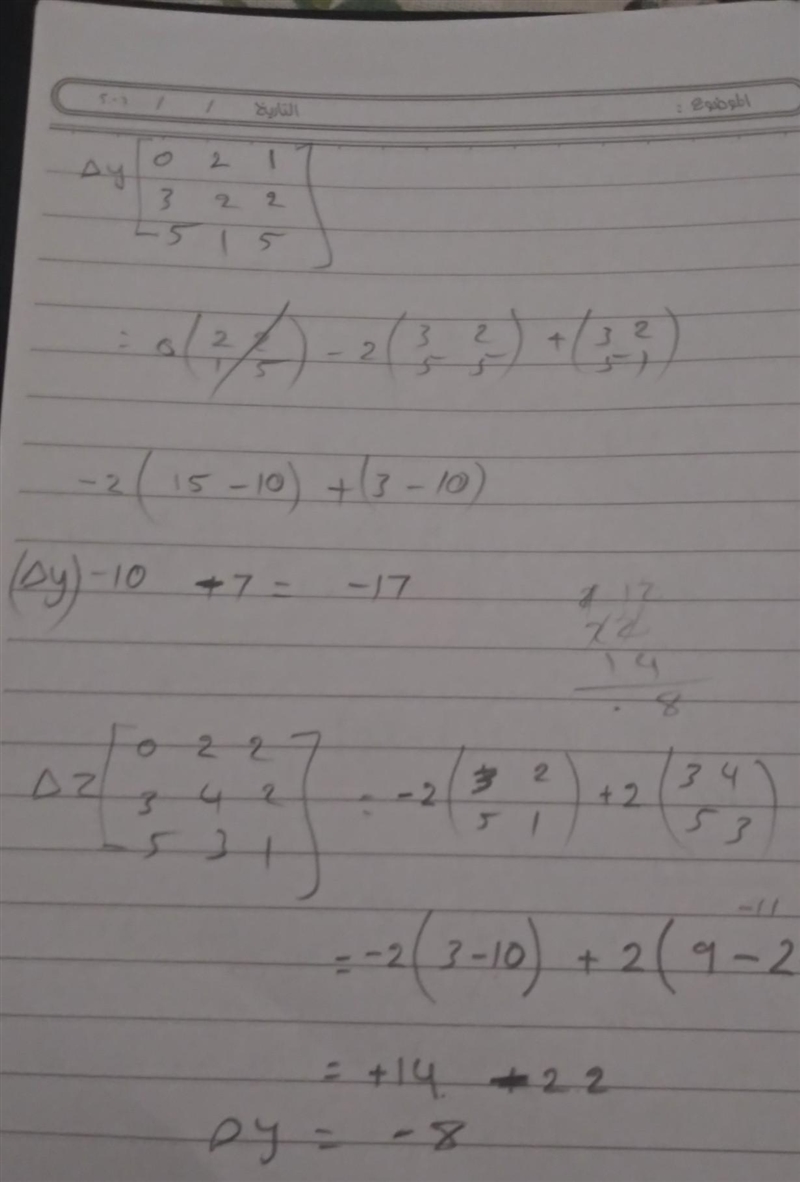 الموضوع : التاريخ / / ٢٠٠
Δy [ 0 2 1
3 2 2
5 1 5 ]
= 0 ( 2 2
1 5 ) - 2 ( 3 2
5 5 ) + ( 3 2
5 1 )
-2 ( 15 - 10 ) + ( 3 - 10 )
(Δy) -10 -7 = -17
14
8
Δz [ 0 2 2
3 4 2
5 3 1 ] = -2 ( 3 2
5 1 ) +2 ( 3 4
5 3 )
-11
= -2 ( 3-10 ) + 2 ( 9 - 2
= +14 -22
Δy = -8